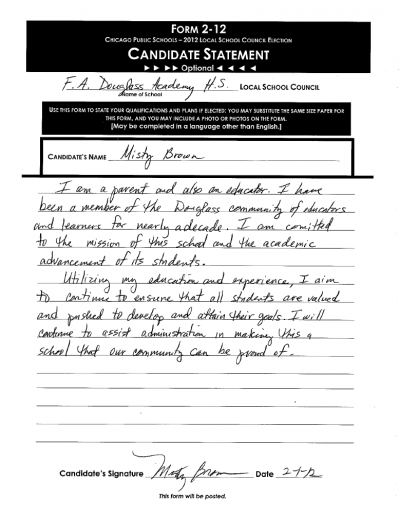 FORM 2-12
CHICAGO PUBLIC SCHOOLS – 2012 LOCAL SCHOOL COUNCIL ELECTION
CANDIDATE STATEMENT
▶ ▶ ▶ ▶ Optional ◀ ◀ ◀ ◀
F. A. Douglass Academy H.S. LOCAL SCHOOL COUNCIL
Name of School
USE THIS FORM TO STATE YOUR QUALIFICATIONS AND PLANS IF ELECTED; YOU MAY SUBSTITUTE THE SAME SIZE PAPER FOR
THIS FORM, AND YOU MAY INCLUDE A PHOTO OR PHOTOS ON THE FORM.
[May be completed in a language other than English.]
CANDIDATE'S NAME Misty Brown
I am a parent and also an educator. I have
been a member of the Douglass community of educators
and learners for nearly a decade. I am comitted
to the mission of this school and the academic
advancement of its students.
Utilizing my education and experience, I aim
to continue to ensure that all students are valued
and pushed to develop and attain their goals. I will
continue to assist administration in making this a
school that our community can be proud of.
Candidate's Signature Misty Brown Date 2-1-12
This form will be posted.